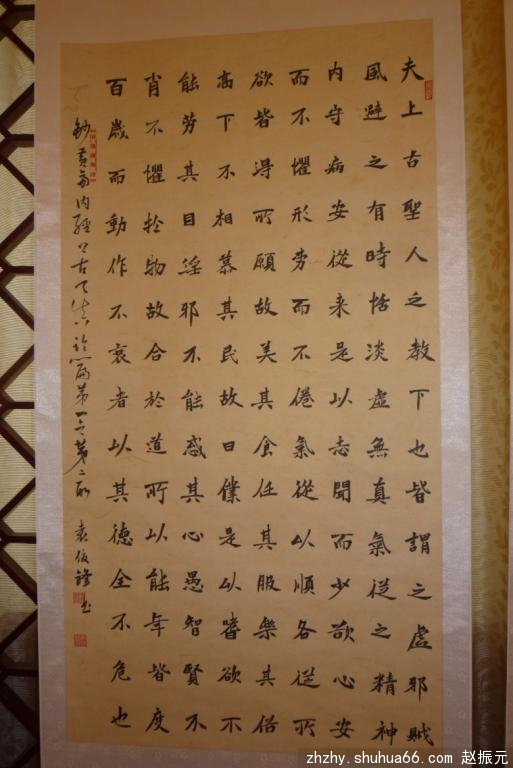 夫上古聖人之教下也皆謂之虛邪賊
風避之有時恬淡虛無真氣從之精神
内守病安從来是以志閒而少欲心安
而不懼形劳而不倦氣從以順各從所
欲皆得所願故美其食任其服樂其俗
高下不相慕其民故曰僕是以嗜欲不
能劳其目淫邪不能惑其心愚智賢不
肖不懼於物故合於道所以能年皆度
百歲而動作不衰者以其德全不危也
鈔黄帝内經上古天真論篇第一之第二段 袁俊书
zhzhy.shuhua66.com 赵振元